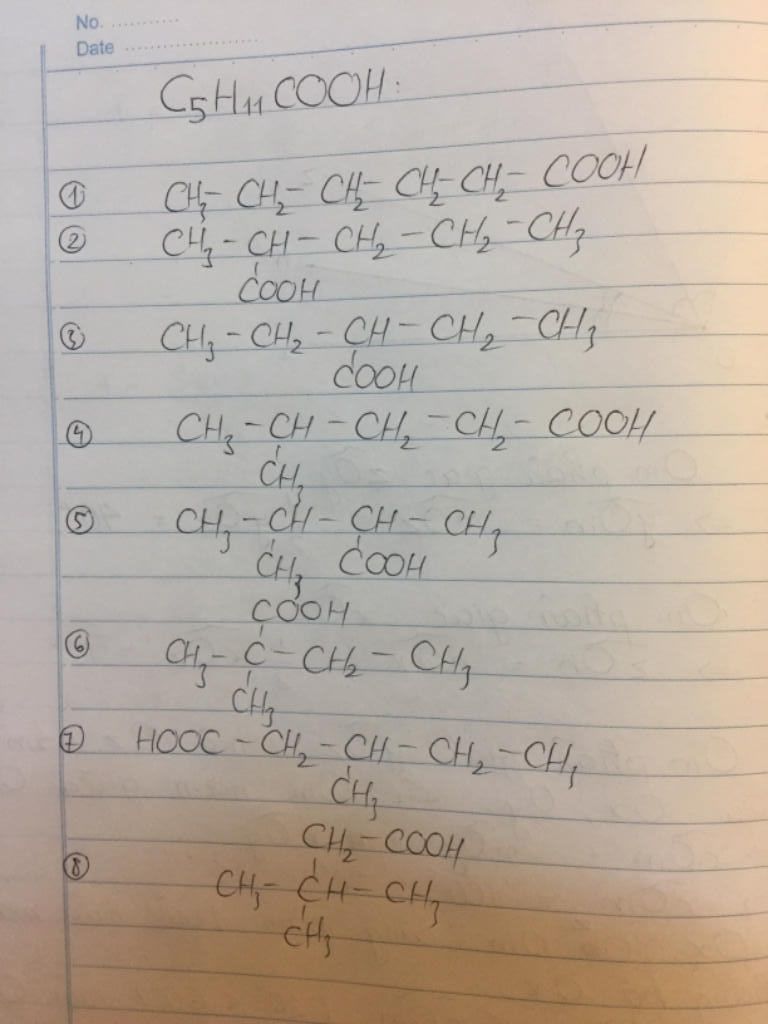 No. ...........
Date ......................
C₅H₁₁COOH:
① CH₃- CH₂- CH₂- CH₂- CH₂- COOH
② CH₃ - CH - CH₂ - CH₂ - CH₃
COOH
③ CH₃ - CH₂ - CH - CH₂ - CH₃
COOH
④ CH₃ - CH - CH₂ - CH₂ - COOH
CH₃
⑤ CH₃ - CH - CH - CH₃
CH₃ COOH
COOH
⑥ CH₃ - C - CH₂ - CH₃
CH₃
⑦ HOOC - CH₂ - CH - CH₂ - CH₃
CH₃
CH₂ - COOH
⑧ CH₃ - CH - CH₃
CH₃